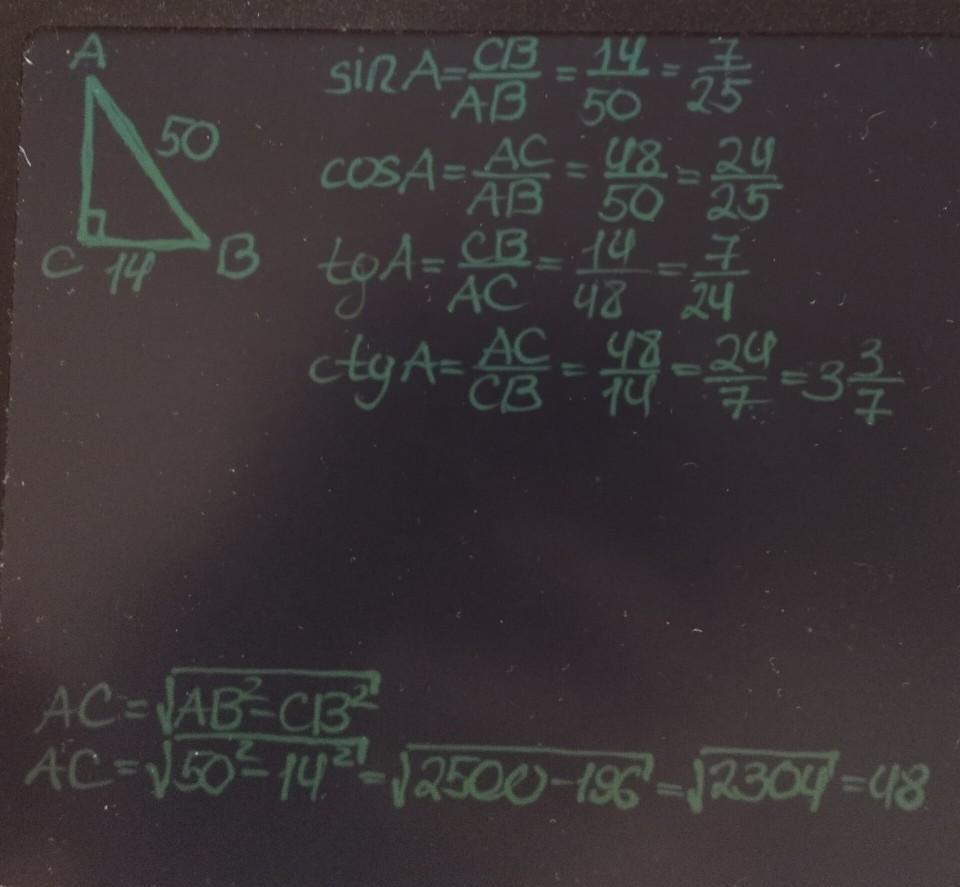 A
50
C 14 B
sinA=CB/AB=14/50=7/25
cosA=AC/AB=48/50=24/25
tgA=CB/AC=14/48=7/24
ctgA=AC/CB=48/14=24/7=3 3/7
AC=√(AB²-CB²)
AC=√(50²-14²)=√(2500-196)=√2304=48